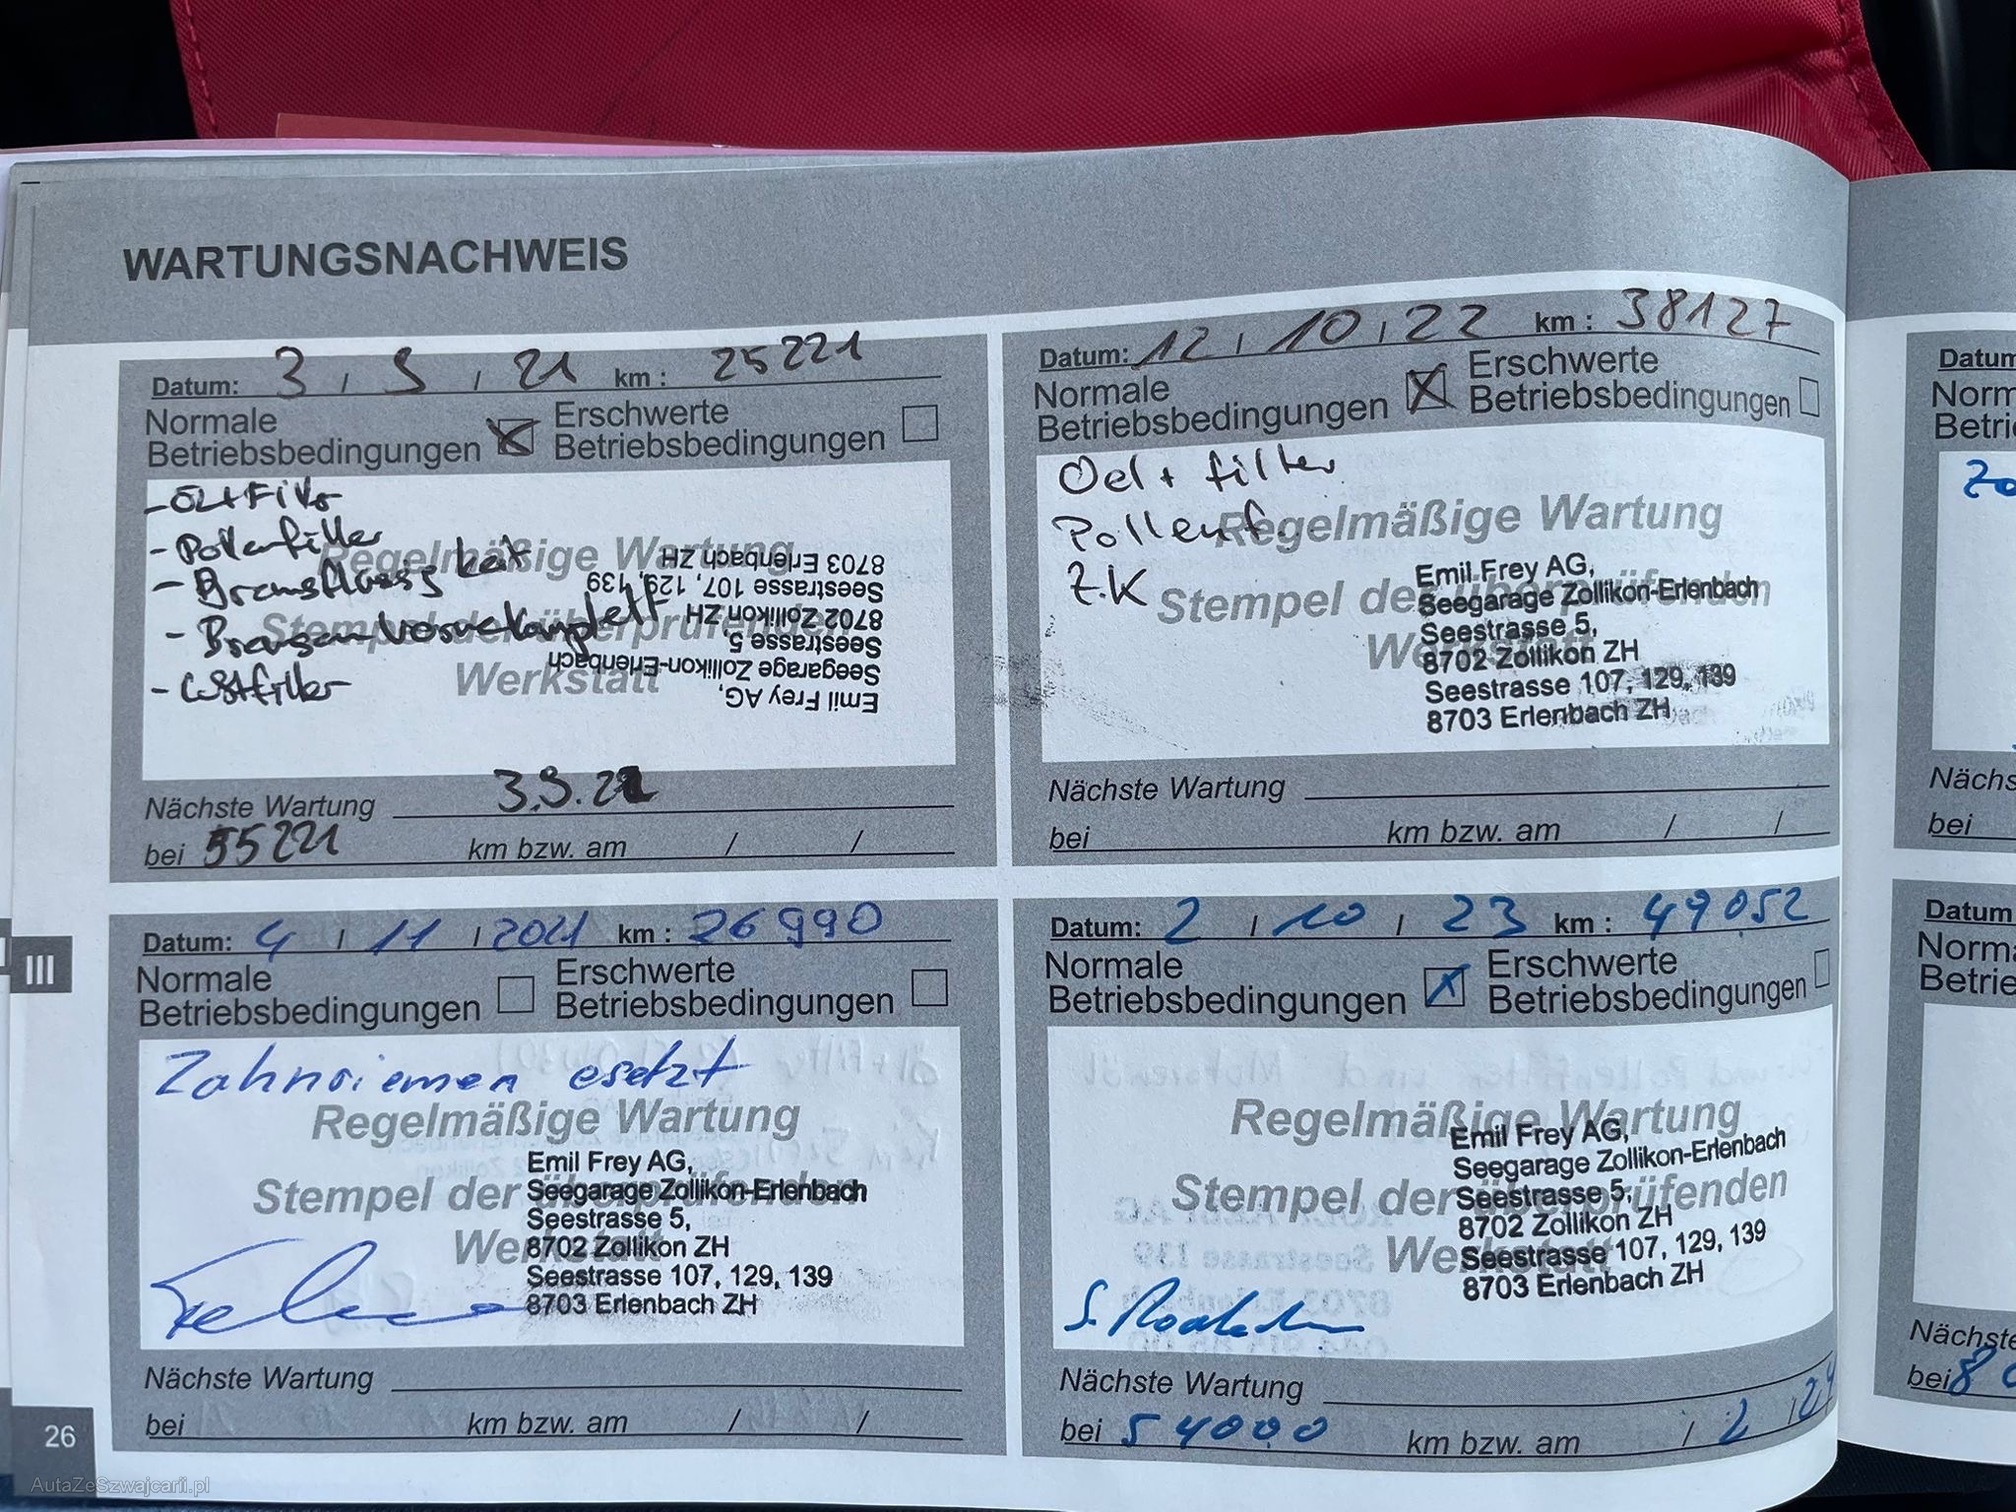 WARTUNGSNACHWEIS
Datum: 3 / 9 / 21 km : 25221
Normale
Betriebsbedingungen
Erschwerte
Betriebsbedingungen
- Öl+Filter
- Pollenfilter
- Bremsflüssigkeit
- Bremsen vorne komplett
- Luftfilter
Regelmäßige Wartung
Stempel der überprüfenden
Werkstatt
Emil Frey AG,
Seegarage Zollikon-Erlenbach
Seestrasse 5,
8702 Zollikon ZH
Seestrasse 107, 129, 139
8703 Erlenbach ZH
Nächste Wartung 3.9.22
bei 55221 km bzw. am / /
Datum: 12 / 10 / 22 km : 38127
Normale
Betriebsbedingungen
Erschwerte
Betriebsbedingungen
Oel + filter
Pollenf.
Z.K
Regelmäßige Wartung
Stempel der überprüfenden
Werkstatt
Emil Frey AG,
Seegarage Zollikon-Erlenbach
Seestrasse 5,
8702 Zollikon ZH
Seestrasse 107, 129, 139
8703 Erlenbach ZH
Nächste Wartung
bei km bzw. am / /
Datum: 4 / 11 / 2021 km : 26990
Normale
Betriebsbedingungen
Erschwerte
Betriebsbedingungen
Zahnriemen esetzt
Regelmäßige Wartung
Stempel der überprüfenden
Werkstatt
Emil Frey AG,
Seegarage Zollikon-Erlenbach
Seestrasse 5,
8702 Zollikon ZH
Seestrasse 107, 129, 139
8703 Erlenbach ZH
Nächste Wartung
bei km bzw. am / /
Datum: 2 / 10 / 23 km : 49052
Normale
Betriebsbedingungen
Erschwerte
Betriebsbedingungen
Regelmäßige Wartung
Stempel der überprüfenden
Werkstatt
Emil Frey AG,
Seegarage Zollikon-Erlenbach
Seestrasse 5,
8702 Zollikon ZH
Seestrasse 107, 129, 139
8703 Erlenbach ZH
Nächste Wartung
bei 54000 km bzw. am / 2 / 24
III
26
Datum
Norm
Betri
Zo
Nächs
bei
Datum
Norm
Betrie
Nächste
bei 80
AutaZeSzwajcarii.pl